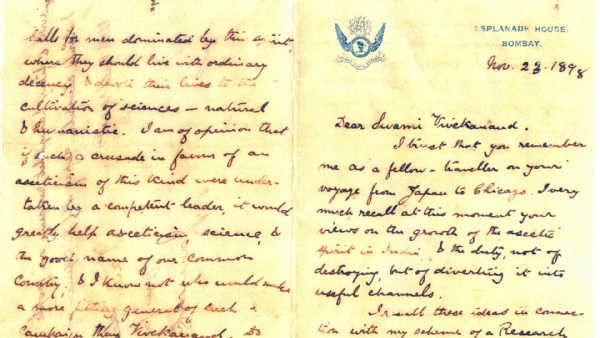 2
halls for men dominated by this spirit,
where they should live with ordinary
decency & devote their lives to the
cultivation of sciences — natural
& humanistic. I am of opinion that
if such a crusade in favour of an
asceticism of this kind were under-
taken by a competent leader, it would
greatly help asceticism, science, &
the good name of our common
country; & I know not who would make
a more fitting general of such a
campaign than Vivekanand. Do
ESPLANADE HOUSE.
BOMBAY.
Nov. 23. 1898
Dear Swami Vivekanand.
I trust that you remember
me as a fellow-traveller on your
voyage from Japan to Chicago. I very
much recall at this moment your
views on the growth of the ascetic
spirit in India, & the duty, not of
destroying, but of diverting it into
useful channels.
I recall these ideas in connec-
tion with my scheme of a Research